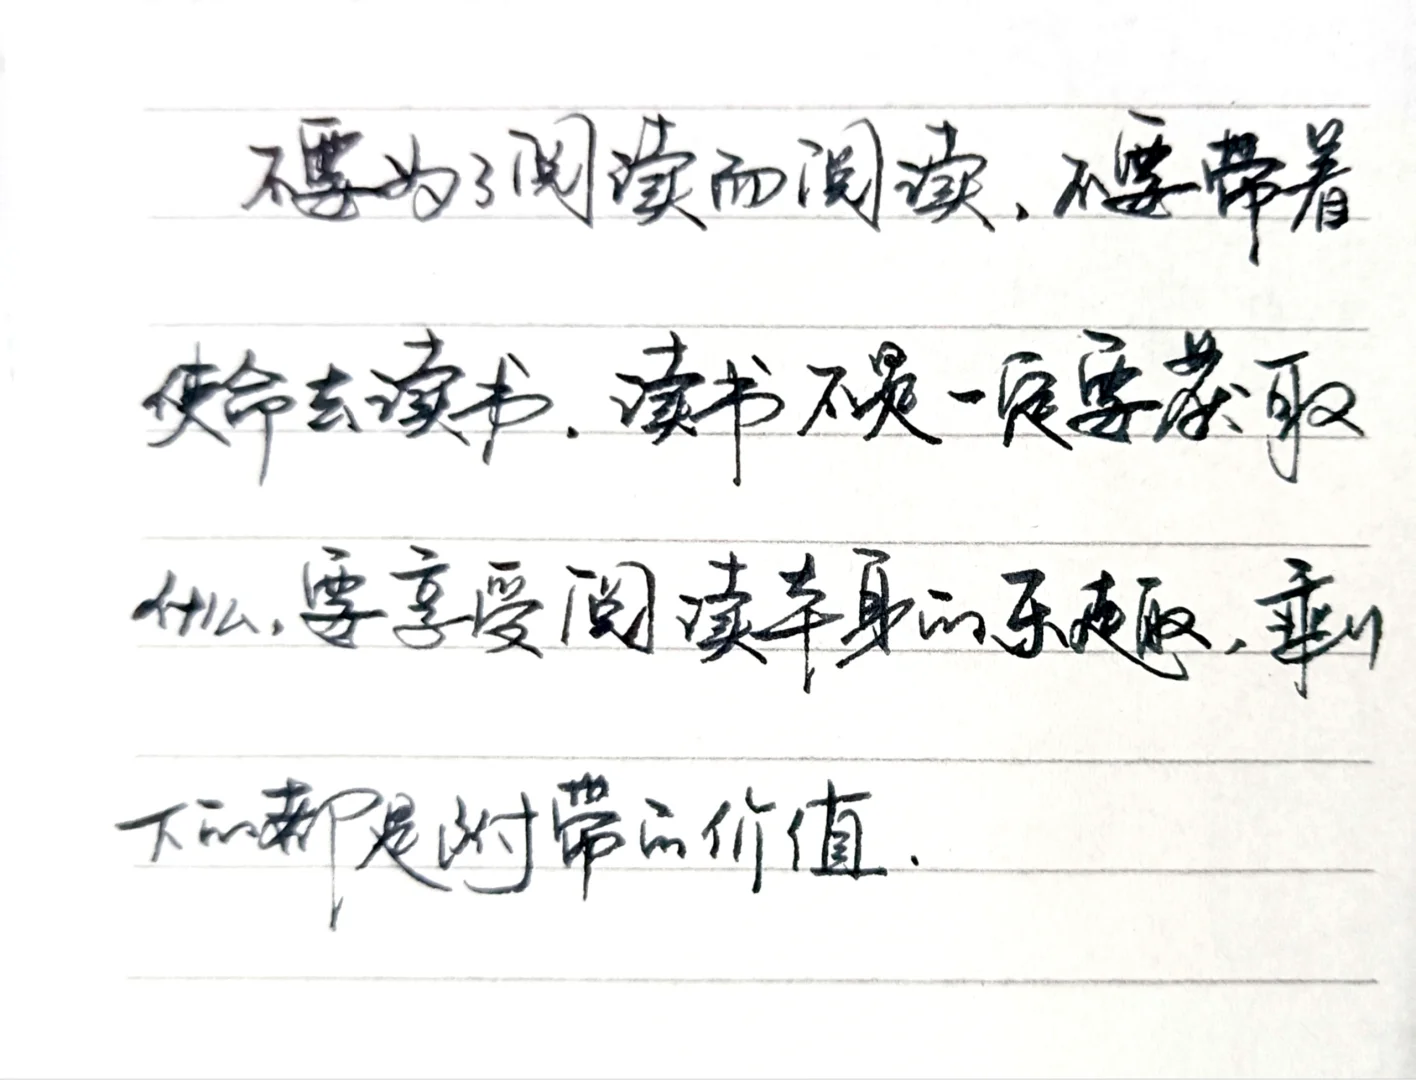 不要为了阅读而阅读,不要带着
使命去读书.读书不是一定要获取
什么,要享受阅读本身的乐趣,剩
下的都是附带的价值.